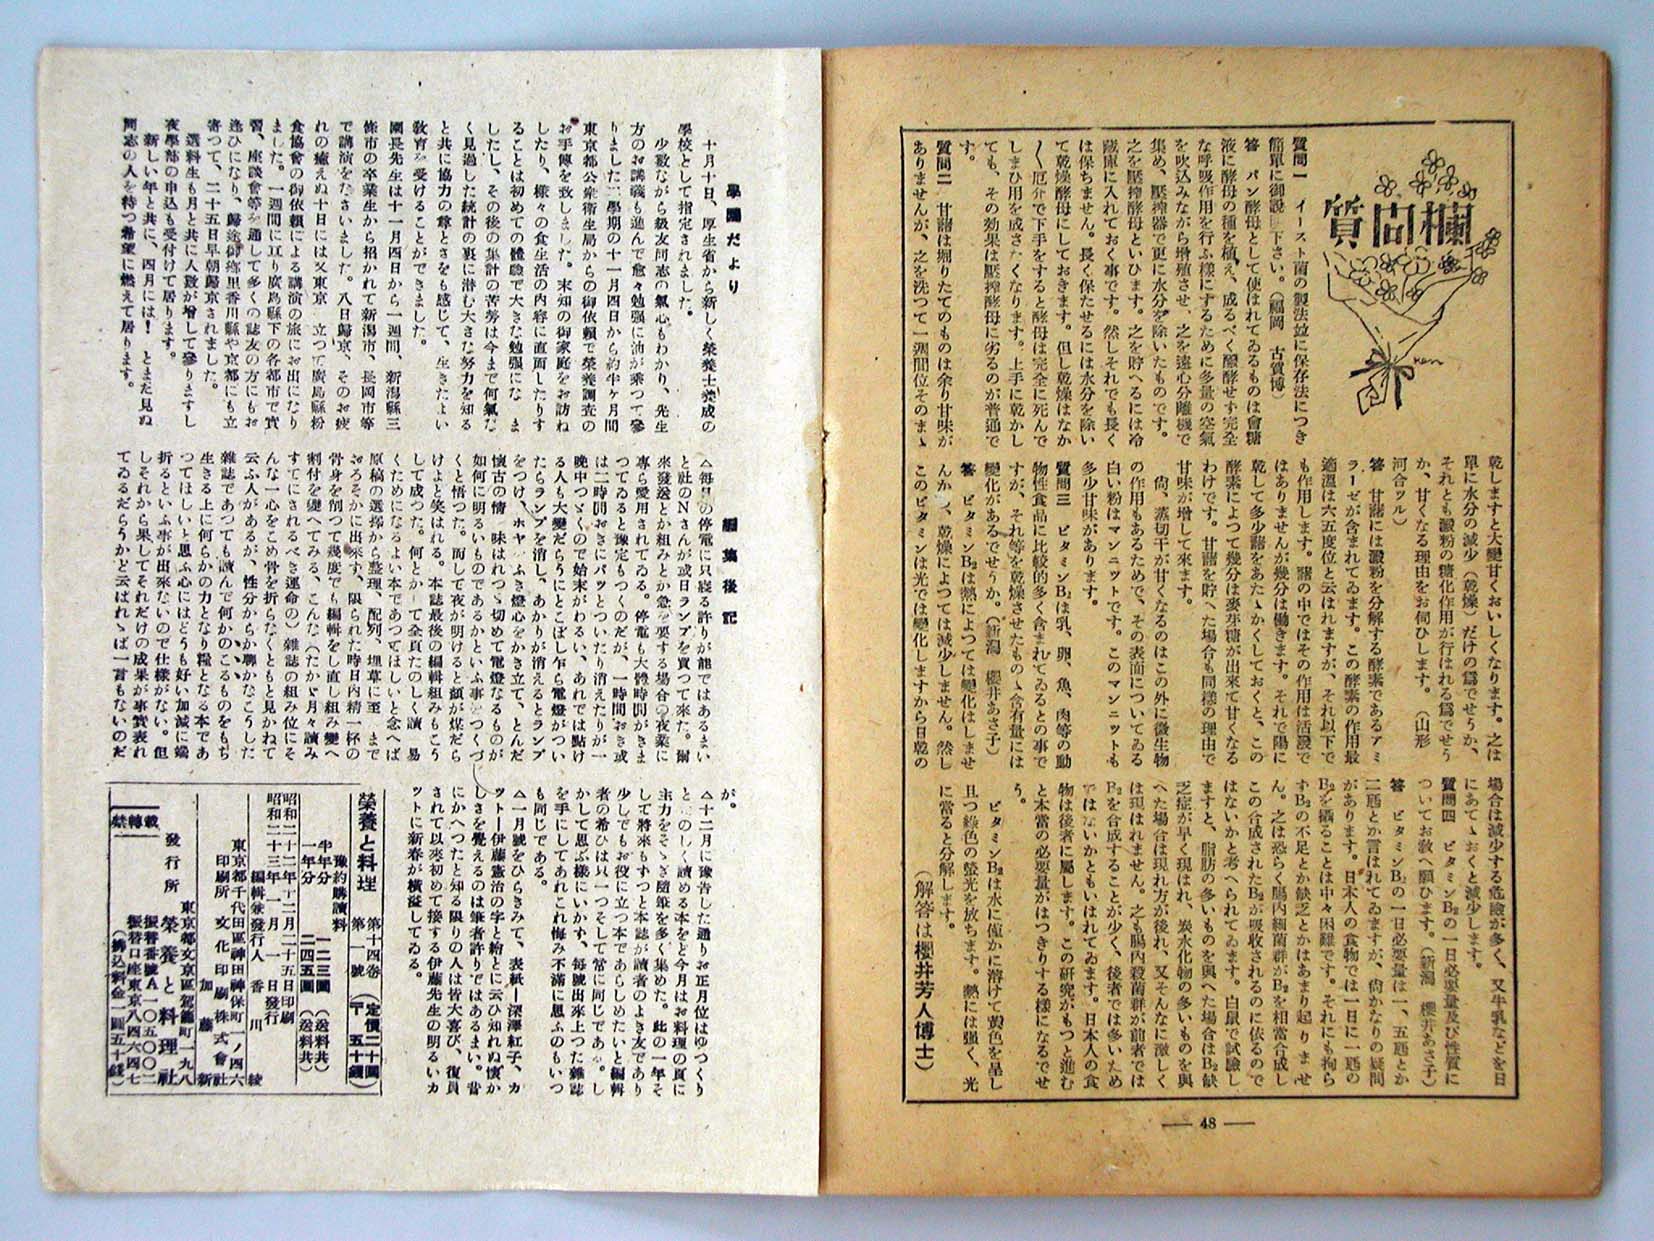 質問欄
質問一　イースト菌の製法並に保存法につき
簡單に御說明下さい。(福岡　古賀博)
答　パン酵母として使はれてゐるものは含糖
液に酵母の種を植ゑ、成るべく醱酵せず完全
な呼吸作用を行ふ樣にするために多量の空氣
を吹込みながら增殖させ、之を遠心分離機で
集め、壓搾器で更に水分を除いたものです。
之を壓搾酵母といひます。之を貯へるには冷
藏庫に入れておく事です。然しそれでも長く
は保ちません。長く保たせるには水分を除い
て乾燥酵母にしておきます。但し乾燥はなか
〱厄介で下手をすると酵母は完全に死んで
しまひ用を成さなくなります。上手に乾かし
ても、その効果は壓搾酵母に劣るのが普通で
す。
質問二　甘藷は堀りたてのものは余り甘味が
ありませんが、之を洗つて一週間位そのまゝ
乾しますと大變甘くおいしくなります。之は
單に水分の減少(乾燥)だけの爲でせうか、
それとも澱粉の糖化作用が行はれる爲でせう
か、甘くなる理由をお伺ひします。(山形
河合ツル)
答　甘藷には澱粉を分解する酵素であるアミ
ラーゼが含まれてゐます。この酵素の作用最
適溫は六五度位と云はれますが、それ以下で
も作用します。藷の中ではその作用は活潑で
はありませんが幾分は働きます。それで陽に
乾して多少藷をあたゝかくしておくと、この
酵素によつて幾分は麥芽糖が出來て甘くなる
わけです。甘藷を貯へた場合も同樣の理由で
甘味が增して來ます。
尙、蒸切干が甘くなるのはこの外に微生物
の作用もあるためで、その表面についてゐる
白い粉はマンニットです。このマンニットも
多少甘味があります。
質問三　ビタミンB₂は乳、卵、魚、肉等の動
物性食品に比較的多く含まれてゐるとの事で
すが、それ等を乾燥させたものゝ含有量には
變化があるでせうか。(新潟　櫻井あさ子)
答　ビタミンB₂は熱によつては變化はしませ
んかつ、乾燥によつては減少しません。然し
このビタミンは光では變化しますから日乾の
場合は減少する危險が多く、又牛乳などを日
にあてゝおくと減少します。
質問四　ビタミンB₂の一日必要量及び性質に
ついてお敎へ願ひます。(新潟　櫻井あさ子)
答　ビタミンB₂の一日必要量は一、五瓱とか
二瓱とか言はれてゐますが、尙かなりの疑問
があります。日本人の食物では一日に一瓱の
B₂を攝ることは中々困難です。それにも拘ら
ずB₂の不足とか缺乏とかはあまり起りませ
ん。之は恐らく腸內細菌群がB₂を相當合成し
この合成されたB₂が吸收されるのに依るので
はないかと考へられてゐます。白鼠で試驗し
ますと、脂肪の多いものを與へた場合はB₂缺
乏症が早く現はれ、炭水化物の多いものを與
へた場合は現れ方が後れ、又そんなに激しく
は現はれません。之も腸內殺菌群が前者では
B₂を合成することが少く、後者では多いため
ではないかともいはれてゐます。日本人の食
物は後者に屬します。この硏究がもつと進む
と本當の必要量がはつきりする樣になるでせ
う。
ビタミンB₂は水に僅かに溶けて黃色を呈し
且つ綠色の螢光を放ちます。熱には强く、光
に當ると分解します。
(解答は櫻井芳人博士)
— 48 —
學園だより
十月十日、厚生省から新しく榮養士養成の
學校として指定されました。
少數ながら級友同志の氣心もわかり、先生
方のお講義も進んで愈々勉强に油が乘つて參
りました二學期の十一月四日から約半ヶ月間
東京都公衆衞生局からの御依賴で榮養調査の
お手傳を致しました。未知の御家庭をお訪ね
したり、樣々の食生活の內容に直面したりす
ることは初めての體驗で大きな勉强になりま
したし、その後の集計の苦勞は今まで何氣な
く見過した統計の裏に潛む大きな努力を知る
と共に協力の尊とさをも感じて、生きたよい
敎育を受けることができました。
園長先生は十一月四日から一週間、新潟縣三
條市の卒業生から招かれて新潟市、長岡市等
で講演をなさいました。八日歸京、そのお疲
れの癒えぬ十日には又東京を立つて廣島縣粉
食協會の御依賴による講演の旅にお出になり
ました。一週間に亘り廣島縣下の各都市で實
習、座談會等を通して多くの誌友の方にもお
逢ひになり、歸途御鄕里香川縣や京都にも立
寄つて、二十五日早朝歸京されました。
選料生も月と共に人數が增して參りますし
夜學部の申込も受付けて居ります。
新しい年と共に、四月には！　とまだ見ぬ
同志の人を待つ希望に燃えて居ります。
編集後記
△每日の停電に只寢る許りが能ではあるまい
と社のNさんが或日ランプを買つて來た。爾
來發送とか組みとか急を要する場合の夜業に
專ら愛用されてゐる。停電も大體時間がきま
つてゐると豫定もつくのだが、一時間おき或
は二時間おきにパッとついたり消えたりが一
晩中つゞくので始末がわるい、あれでは點け
る人も大變だらうにとこぼし乍ら電燈がつい
たらランプを消し、あかりが消えるとランプ
をつけ、ホヤをふき燈心をかき立て、とんだ
懷古の情を味はれつゝ切めて電燈なるものが
如何に明るいものであるかといふ事をつくづ
くと悟つた。而して夜が明けると顏が煤だら
けよと笑はれる。本誌最後の編輯組みもこう
して成つた。何とかして全頁たのしく讀み易
くためになるよい本であつてほしいと念へば
原稿の選擇から整理、配列、埋草に至るまで
おろそかに出來ず、限られた時日內精一杯の
骨身を削つて幾度でも編輯をし直し組み變へ
割付を變へてみる、こんな(たかゞ月々讀み
すてにされるべき運命の)雜誌の組み位にそ
んな一心をこめ骨を折らなくともと見かねて
云ふ人があるが、性分からか聊かなこうした
雜誌であつても讀んで何かのこるものをもち
生きる上に何らかの力となり糧となる本であ
つてほしいと思ふ心にはどうも好い加減に端
折るといふ事が出來ないので仕樣がない。但
しそれから果してそれだけの成果が事實表れ
てゐるだらうかと云はれゝば一言もないのだ
が。
△十二月に豫告した通りお正月位はゆつくり
とたのしく讀める本をと今月はお料理の頁に
主力をそゝぎ隨筆を多く集めた。此の一年そ
して將來もずつと本誌が讀者のよき友であり
少しでもお役に立つ本であらしめたいと編輯
者の希ひは只一つそして常に同じであるし。
かして思ふ樣にいかず、每號出來上つた雜誌
を手にしてあれこれ悔み不滿に思ふのもいつ
も同じである。
△一月號をひらきみて、表紙—深澤紅子、カ
ット—伊藤憲治の字と繪とに云ひ知れぬ懷か
しさを覺えるのは筆者許りではあるまい。昔
にかへつたと知る限りの人は皆大喜び、復員
されて以來初めて接する伊藤先生の明るいカ
ットに新春が橫溢してゐる。
榮養と料理　第十四卷　第一號　(定價二十圓　〒五十錢)
豫約購讀料
半年分　一二三圓(送料共)
一年分　二四五圓(送料共)
昭和二十二年十二月二十五日印刷
昭和二十三年一月一日發行
編輯兼發行人　香川綾
東京都千代田區神田神保町一ノ四六
印刷所　文化印刷株式會社
加藤新
東京都文京區駕籠町一九八
發行所　榮養と料理社
振替番號A一〇五〇〇二
振替口座東京八四六四七
(拂込料金一圓五十錢)
禁轉載